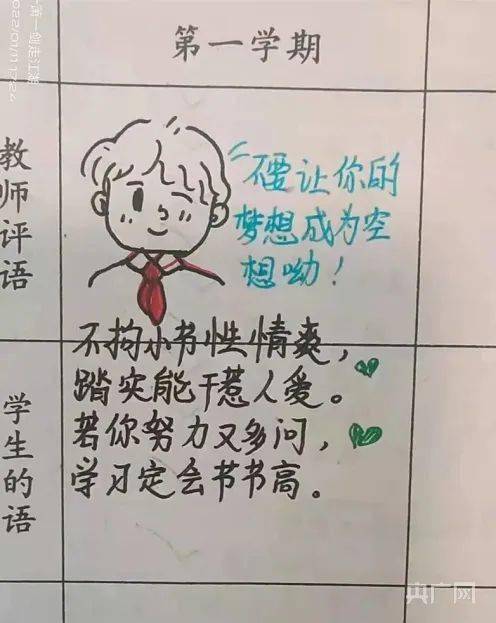 第一学期
教师评语
“不要让你的
梦想成为空
想呦！
不拘小节性情爽，
踏实能干惹人爱。
若你努力又多问，
学习定会节节高。
学生的语
央广网